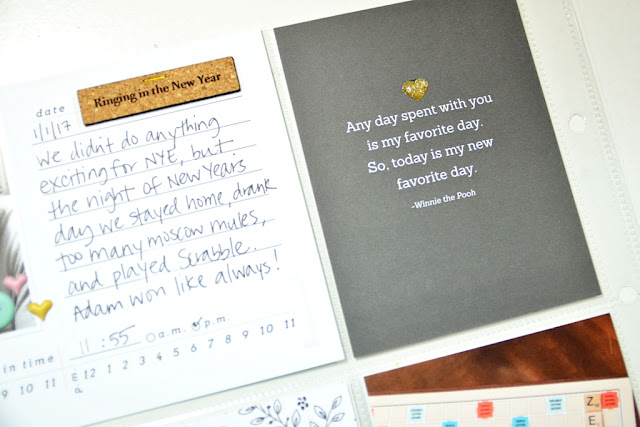 Ringing in the New Year
date
1/1/17
We didn't do anything
exciting for NYE, but
the night of New Years
day we stayed home, drank
too many moscow mules,
and played Scrabble.
Adam won like always!
11:55 a.m. p.m.
12 1 2 3 4 5 6 7 8 9 10 11
in time
9 10 11
Any day spent with you
is my favorite day.
So, today is my new
favorite day.
-Winnie the Pooh
Z10
E